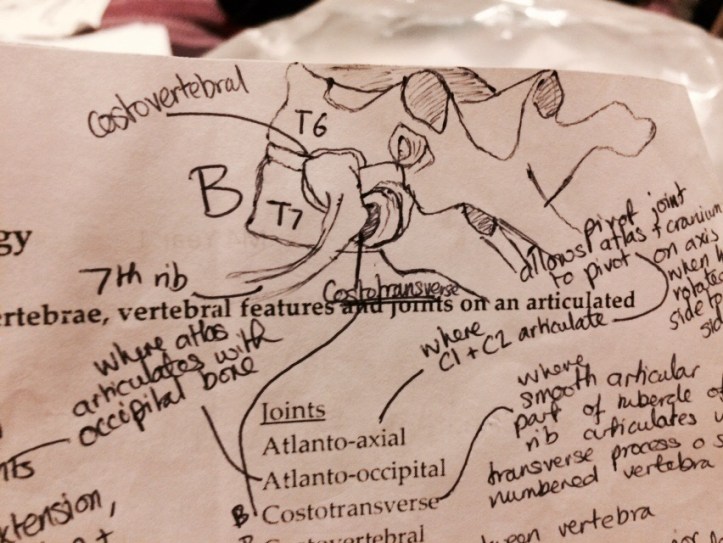 costovertebral
T6
B
T7
7th rib
Costotransverse
pivot joint
allows atlas + cranium
to pivot on axis
when h
rotated
side to
sid
gy
ertebrae, vertebral features and joints on an articulated
where atlas
articulates with
occipital bone
where
C1 + C2 articulate
where
smooth articular
part of tubercle of
rib articulates w
transverse process o s
numbered vertebra
Joints
Atlanto-axial
Atlanto-occipital
B Costotransverse
Costovertebral
nts
xtension,
ween vertebra